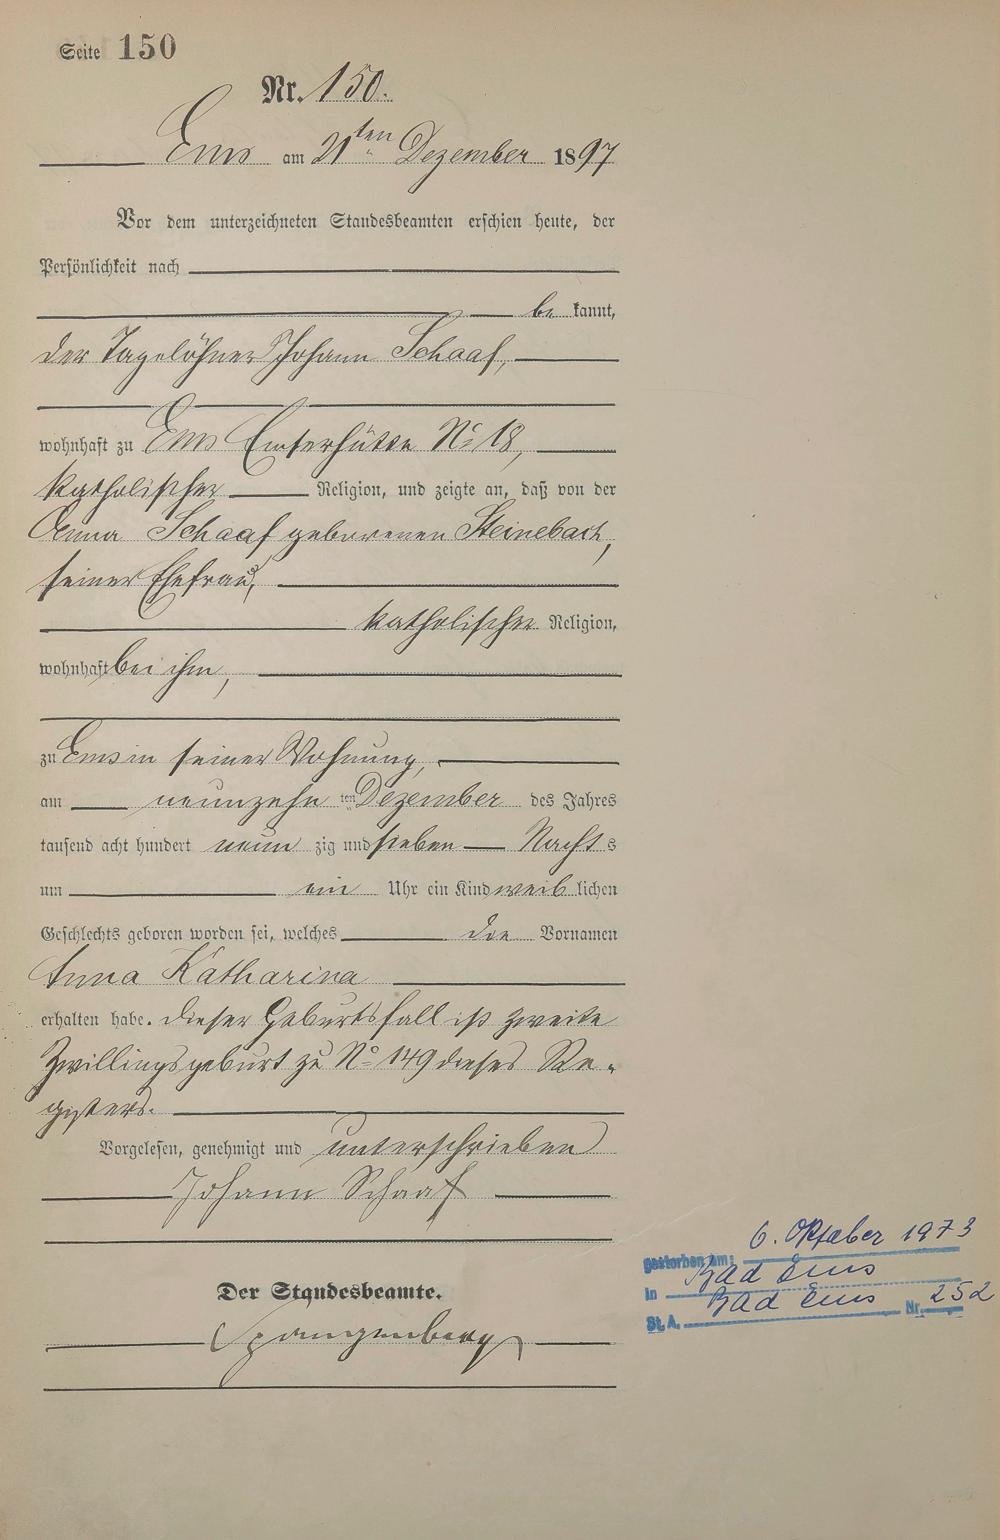 Seite 150
Nr. 150.
Ems am 21ten Dezember 1897
Vor dem unterzeichneten Standesbeamten erschien heute, der
Persönlichkeit nach
be kannt,
der Tagelöhner Johann Schaaf,
wohnhaft zu Ems Emserhütte No 18,
katholischer Religion, und zeigte an, daß von der
Anna Schaaf geborenen Steinebach,
seiner Ehefrau,
katholischer Religion,
wohnhaft bei ihm,
zu Ems in seiner Wohnung,
am neunzehn ten Dezember des Jahres
tausend acht hundert neun zig und sieben Nachts
um ein Uhr ein Kind weib lichen
Geschlechts geboren worden sei, welches die Vornamen
Anna Katharina
erhalten habe. Dieser Geburtsfall ist zweite
Zwillingsgeburt zu No 149 dieses Re-
gisters.
Vorgelesen, genehmigt und unterschrieben
Johann Schaaf
Der Standesbeamte.
Spangenberg
gestorben am: 6. Oktober 1973
in Bad Ems
St. A. Bad Ems Nr. 252